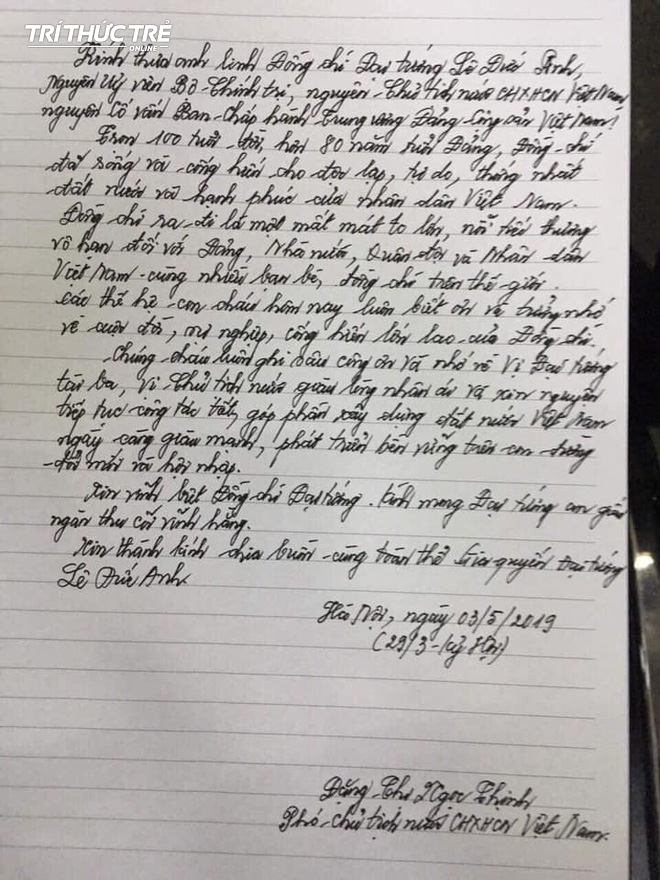 TRÍ THỨC TRẺ
ONLINE
Kính thưa anh linh Đồng chí Đại tướng Lê Đức Anh,
Nguyên Uỷ viên Bộ Chính trị, nguyên Chủ tịch nước CHXHCN Việt Nam,
nguyên Cố vấn Ban Chấp hành Trung ương Đảng Cộng sản Việt Nam!
Tròn 100 tuổi đời, hơn 80 năm tuổi Đảng, Đồng chí
đã sống và cống hiến cho độc lập, tự do, thống nhất
đất nước và hạnh phúc của nhân dân Việt Nam.
Đồng chí ra đi là một mất mát to lớn, nỗi tiếc thương
vô hạn đối với Đảng, Nhà nước, Quân đội và Nhân dân
Việt Nam cùng nhiều bạn bè, đồng chí trên thế giới.
Các thế hệ con cháu hôm nay luôn biết ơn và tưởng nhớ
về cuộc đời, sự nghiệp, cống hiến lớn lao của Đồng chí.
Chúng cháu luôn ghi sâu công ơn và nhớ về Vị Đại tướng
tài ba, Vị Chủ tịch nước giàu lòng nhân ái và xin nguyện
tiếp tục công tác tốt, góp phần xây dựng đất nước Việt Nam
ngày càng giàu mạnh, phát triển bền vững trên con đường
đổi mới và hội nhập.
Xin vĩnh biệt Đồng chí Đại tướng. Kính mong Đại tướng an giấc
ngàn thu cõi vĩnh hằng.
Xin thành kính chia buồn cùng toàn thể Gia quyến Đại tướng
Lê Đức Anh.
Hà Nội, ngày 03/5/2019
(29/3 - Kỷ Hợi)
Đặng Thị Ngọc Thịnh
Phó Chủ tịch nước CHXHCN Việt Nam.